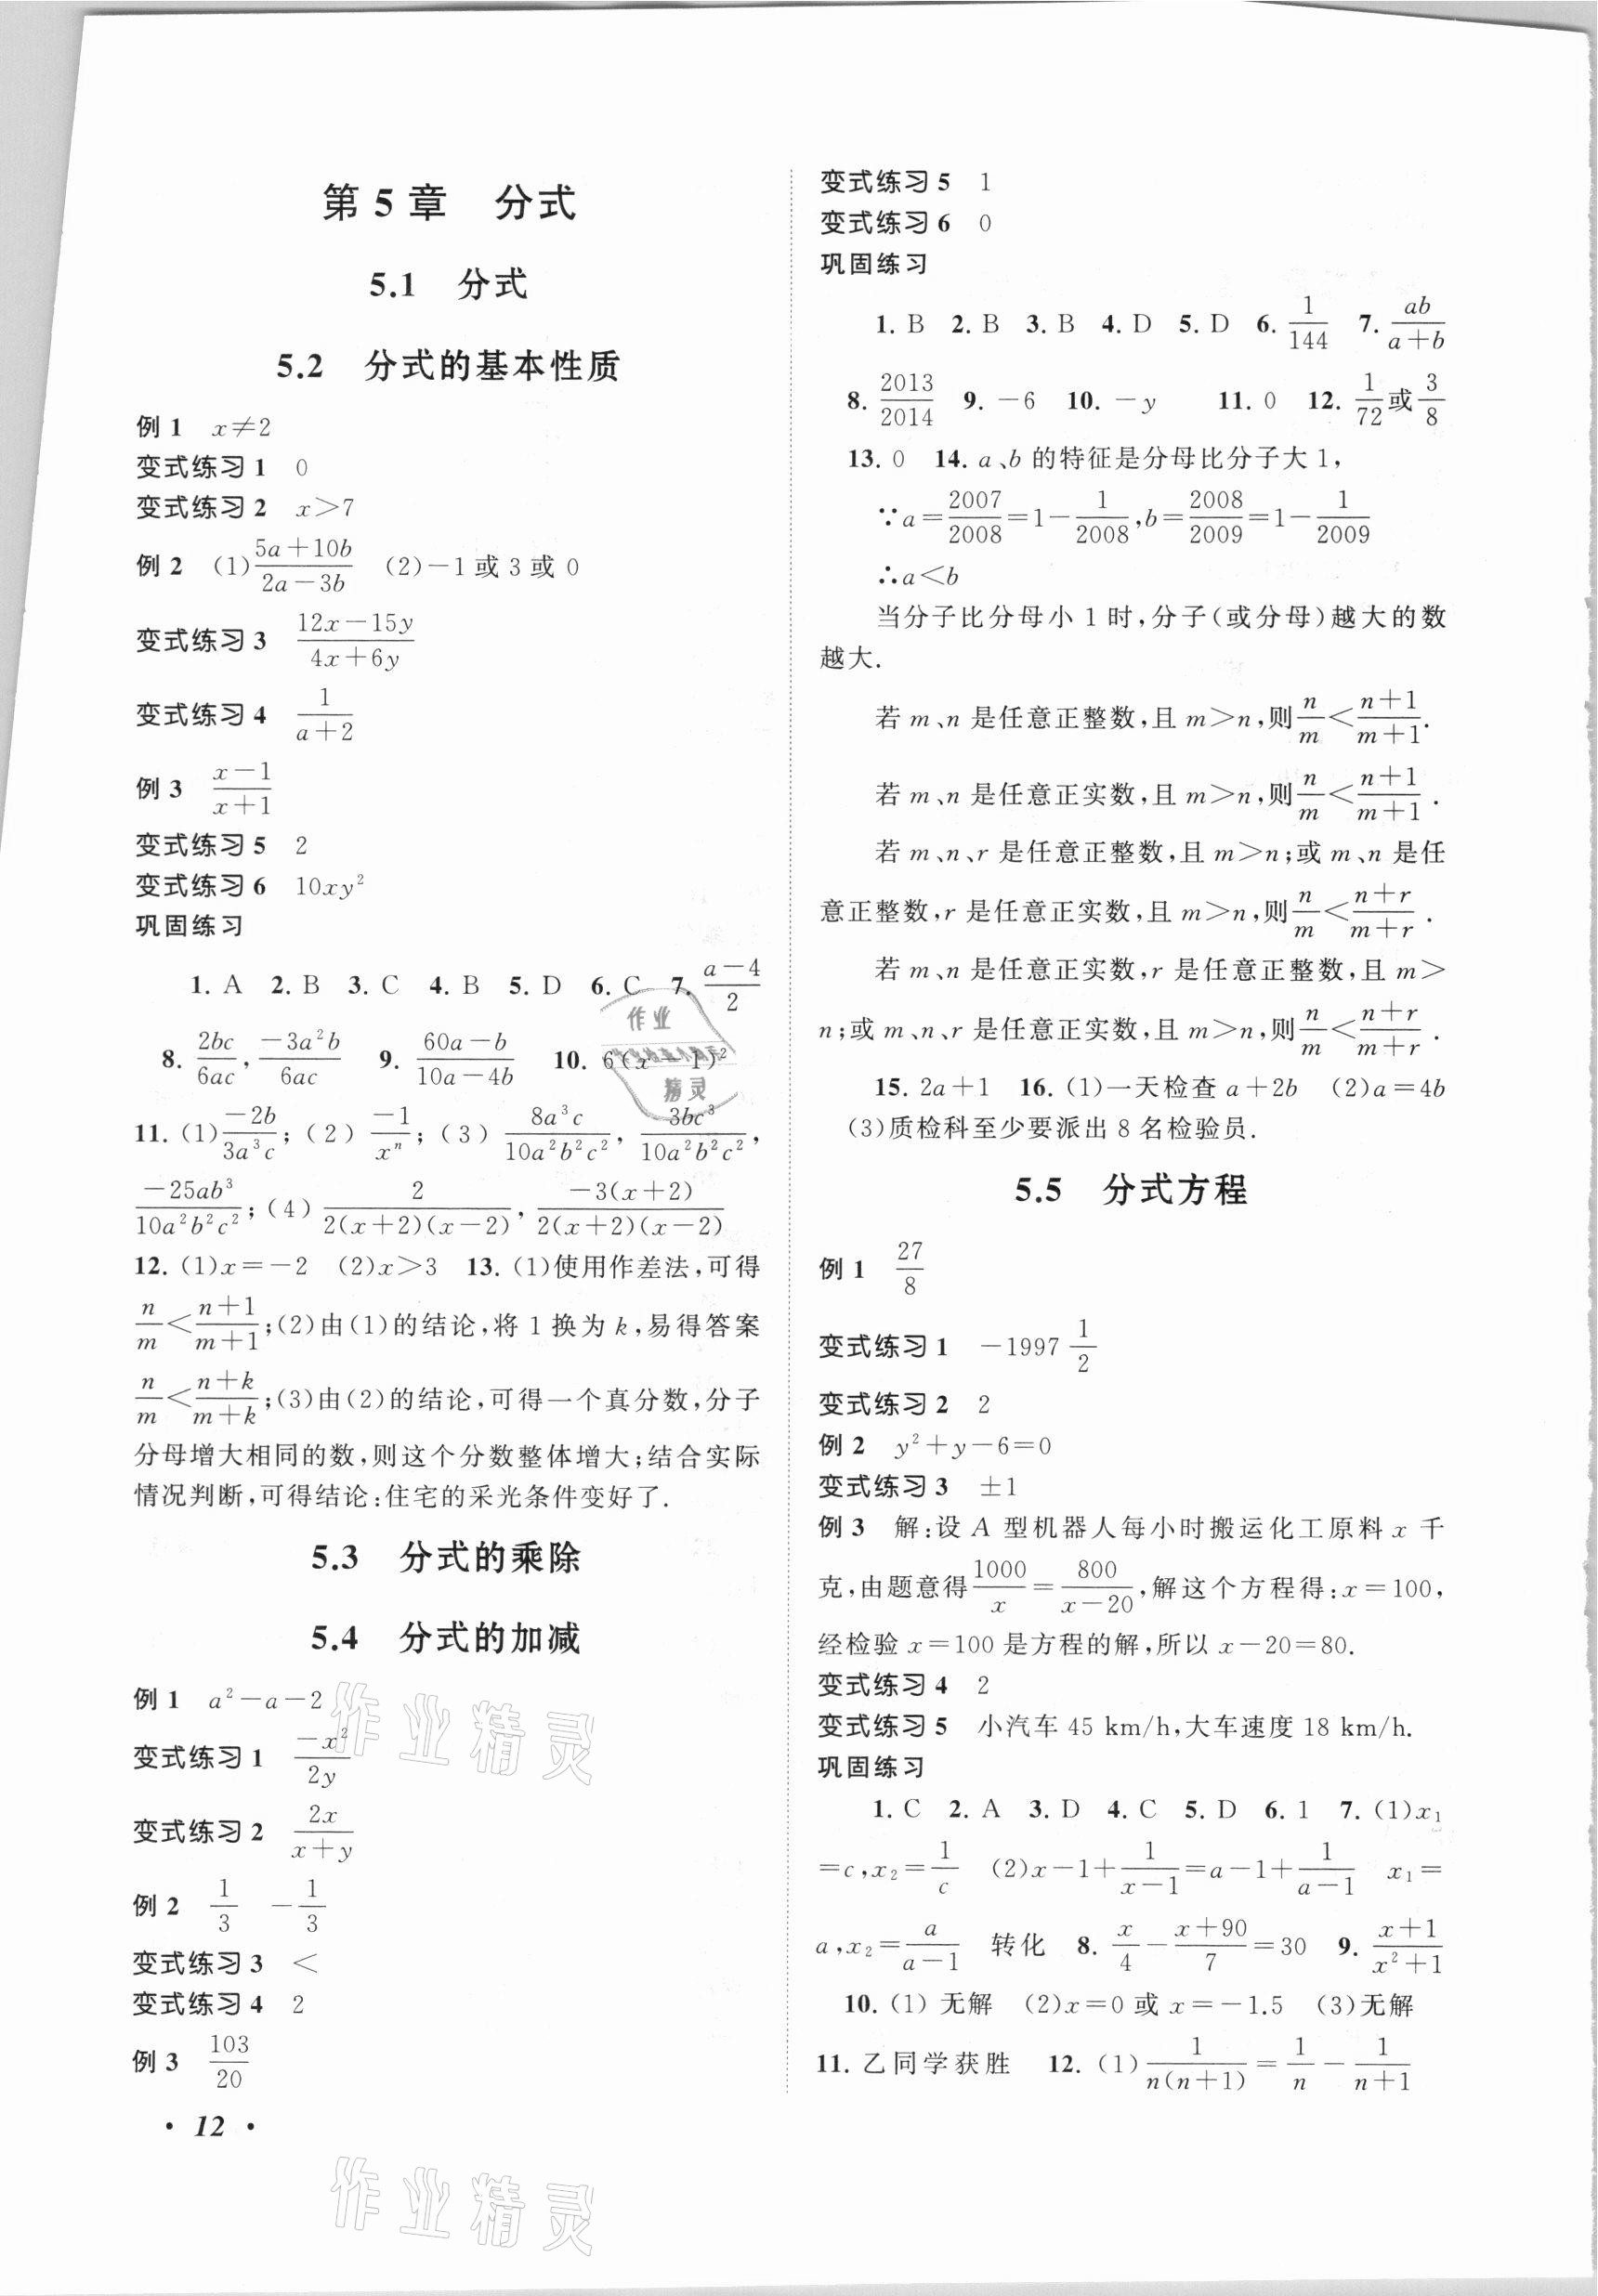 第 5 章 分式
5.1 分式
5.2 分式的基本性质
例 1 x≠2
变式练习 1 0
变式练习 2 x＞7
例 2 (1)\frac{5a+10b}{2a-3b} (2)-1 或 3 或 0
变式练习 3 \frac{12x-15y}{4x+6y}
变式练习 4 \frac{1}{a+2}
例 3 \frac{x-1}{x+1}
变式练习 5 2
变式练习 6 10xy²
巩固练习
1. A 2. B 3. C 4. B 5. D 6. C 7. \frac{a-4}{2}
8. \frac{2bc}{6ac}, \frac{-3a²b}{6ac} 9. \frac{60a-b}{10a-4b} 10. 6(x-1)²
11. (1)\frac{-2b}{3a³c}; (2) \frac{-1}{xⁿ}; (3) \frac{8a³c}{10a²b²c²}, \frac{3bc³}{10a²b²c²},
\frac{-25ab³}{10a²b²c²}; (4) \frac{2}{2(x+2)(x-2)}, \frac{-3(x+2)}{2(x+2)(x-2)}
12. (1)x=-2 (2)x＞3 13. (1)使用作差法,可得
\frac{n}{m}＜\frac{n+1}{m+1};(2)由(1)的结论,将 1 换为 k,易得答案
\frac{n}{m}＜\frac{n+k}{m+k};(3)由(2)的结论,可得一个真分数,分子
分母增大相同的数,则这个分数整体增大;结合实际
情况判断,可得结论:住宅的采光条件变好了.
5.3 分式的乘除
5.4 分式的加减
例 1 a²-a-2
变式练习 1 \frac{-x²}{2y}
变式练习 2 \frac{2x}{x+y}
例 2 \frac{1}{3} -\frac{1}{3}
变式练习 3 ＜
变式练习 4 2
例 3 \frac{103}{20}
· 12 ·
变式练习 5 1
变式练习 6 0
巩固练习
1. B 2. B 3. B 4. D 5. D 6. \frac{1}{144} 7. \frac{ab}{a+b}
8. \frac{2013}{2014} 9. -6 10. -y 11. 0 12. \frac{1}{72}或\frac{3}{8}
13. 0 14. a、b 的特征是分母比分子大 1,
∵a=\frac{2007}{2008}=1-\frac{1}{2008},b=\frac{2008}{2009}=1-\frac{1}{2009}
∴a＜b
当分子比分母小 1 时,分子(或分母)越大的数
越大.
若 m、n 是任意正整数,且 m＞n,则\frac{n}{m}＜\frac{n+1}{m+1}.
若 m、n 是任意正实数,且 m＞n,则\frac{n}{m}＜\frac{n+1}{m+1}.
若 m、n、r 是任意正整数,且 m＞n;或 m、n 是任
意正整数,r 是任意正实数,且 m＞n,则\frac{n}{m}＜\frac{n+r}{m+r}.
若 m、n 是任意正实数,r 是任意正整数,且 m＞
n;或 m、n、r 是任意正实数,且 m＞n,则\frac{n}{m}＜\frac{n+r}{m+r}.
15. 2a+1 16. (1)一天检查 a+2b (2)a=4b
(3)质检科至少要派出 8 名检验员.
5.5 分式方程
例 1 \frac{27}{8}
变式练习 1 -1997\frac{1}{2}
变式练习 2 2
例 2 y²+y-6=0
变式练习 3 ±1
例 3 解:设 A 型机器人每小时搬运化工原料 x 千
克,由题意得\frac{1000}{x}=\frac{800}{x-20},解这个方程得:x=100,
经检验 x=100 是方程的解,所以 x-20=80.
变式练习 4 2
变式练习 5 小汽车 45 km/h,大车速度 18 km/h.
巩固练习
1. C 2. A 3. D 4. C 5. D 6. 1 7. (1)x₁
=c,x₂=\frac{1}{c} (2)x-1+\frac{1}{x-1}=a-1+\frac{1}{a-1} x₁=
a,x₂=\frac{a}{a-1} 转化 8. \frac{x}{4}-\frac{x+90}{7}=30 9. \frac{x+1}{x²+1}
10. (1) 无解 (2)x=0 或 x=-1.5 (3)无解
11. 乙同学获胜 12. (1)\frac{1}{n(n+1)}=\frac{1}{n}-\frac{1}{n+1}
作业
精灵
作业精灵
作业精灵